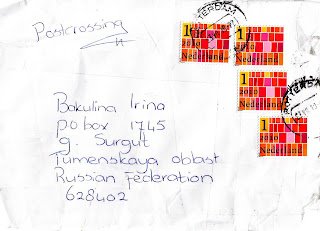 Postcrossing
1
2010
Nederland
1
2010
Nederland
1
2010
Nederland
1
2010
Nederland
Bakulina Irina
po box 1745
g. Surgut
Tumenskaya oblast
Russian Federation
628402